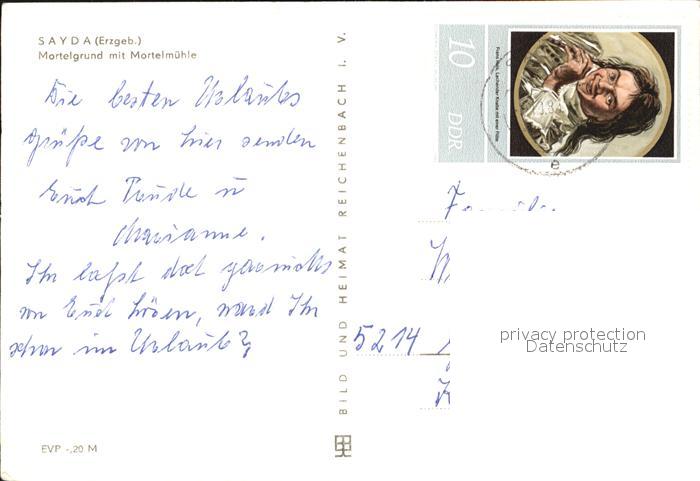 SAYDA (Erzgeb.)
Mortelgrund mit Mortelmühle
Die besten Urlaubs
grüße von hier senden
Euch u
Marianne.
Ihr laßt doch garnichts
von Euch hören, ward Ihr
schon im Urlaub?
EVP -,20 M
BILD UND HEIMAT REICHENBACH I. V.
10
DDR
Frans Hals, Lachender Knabe mit einer Flöte
Familie
5214
privacy protection
Datenschutz